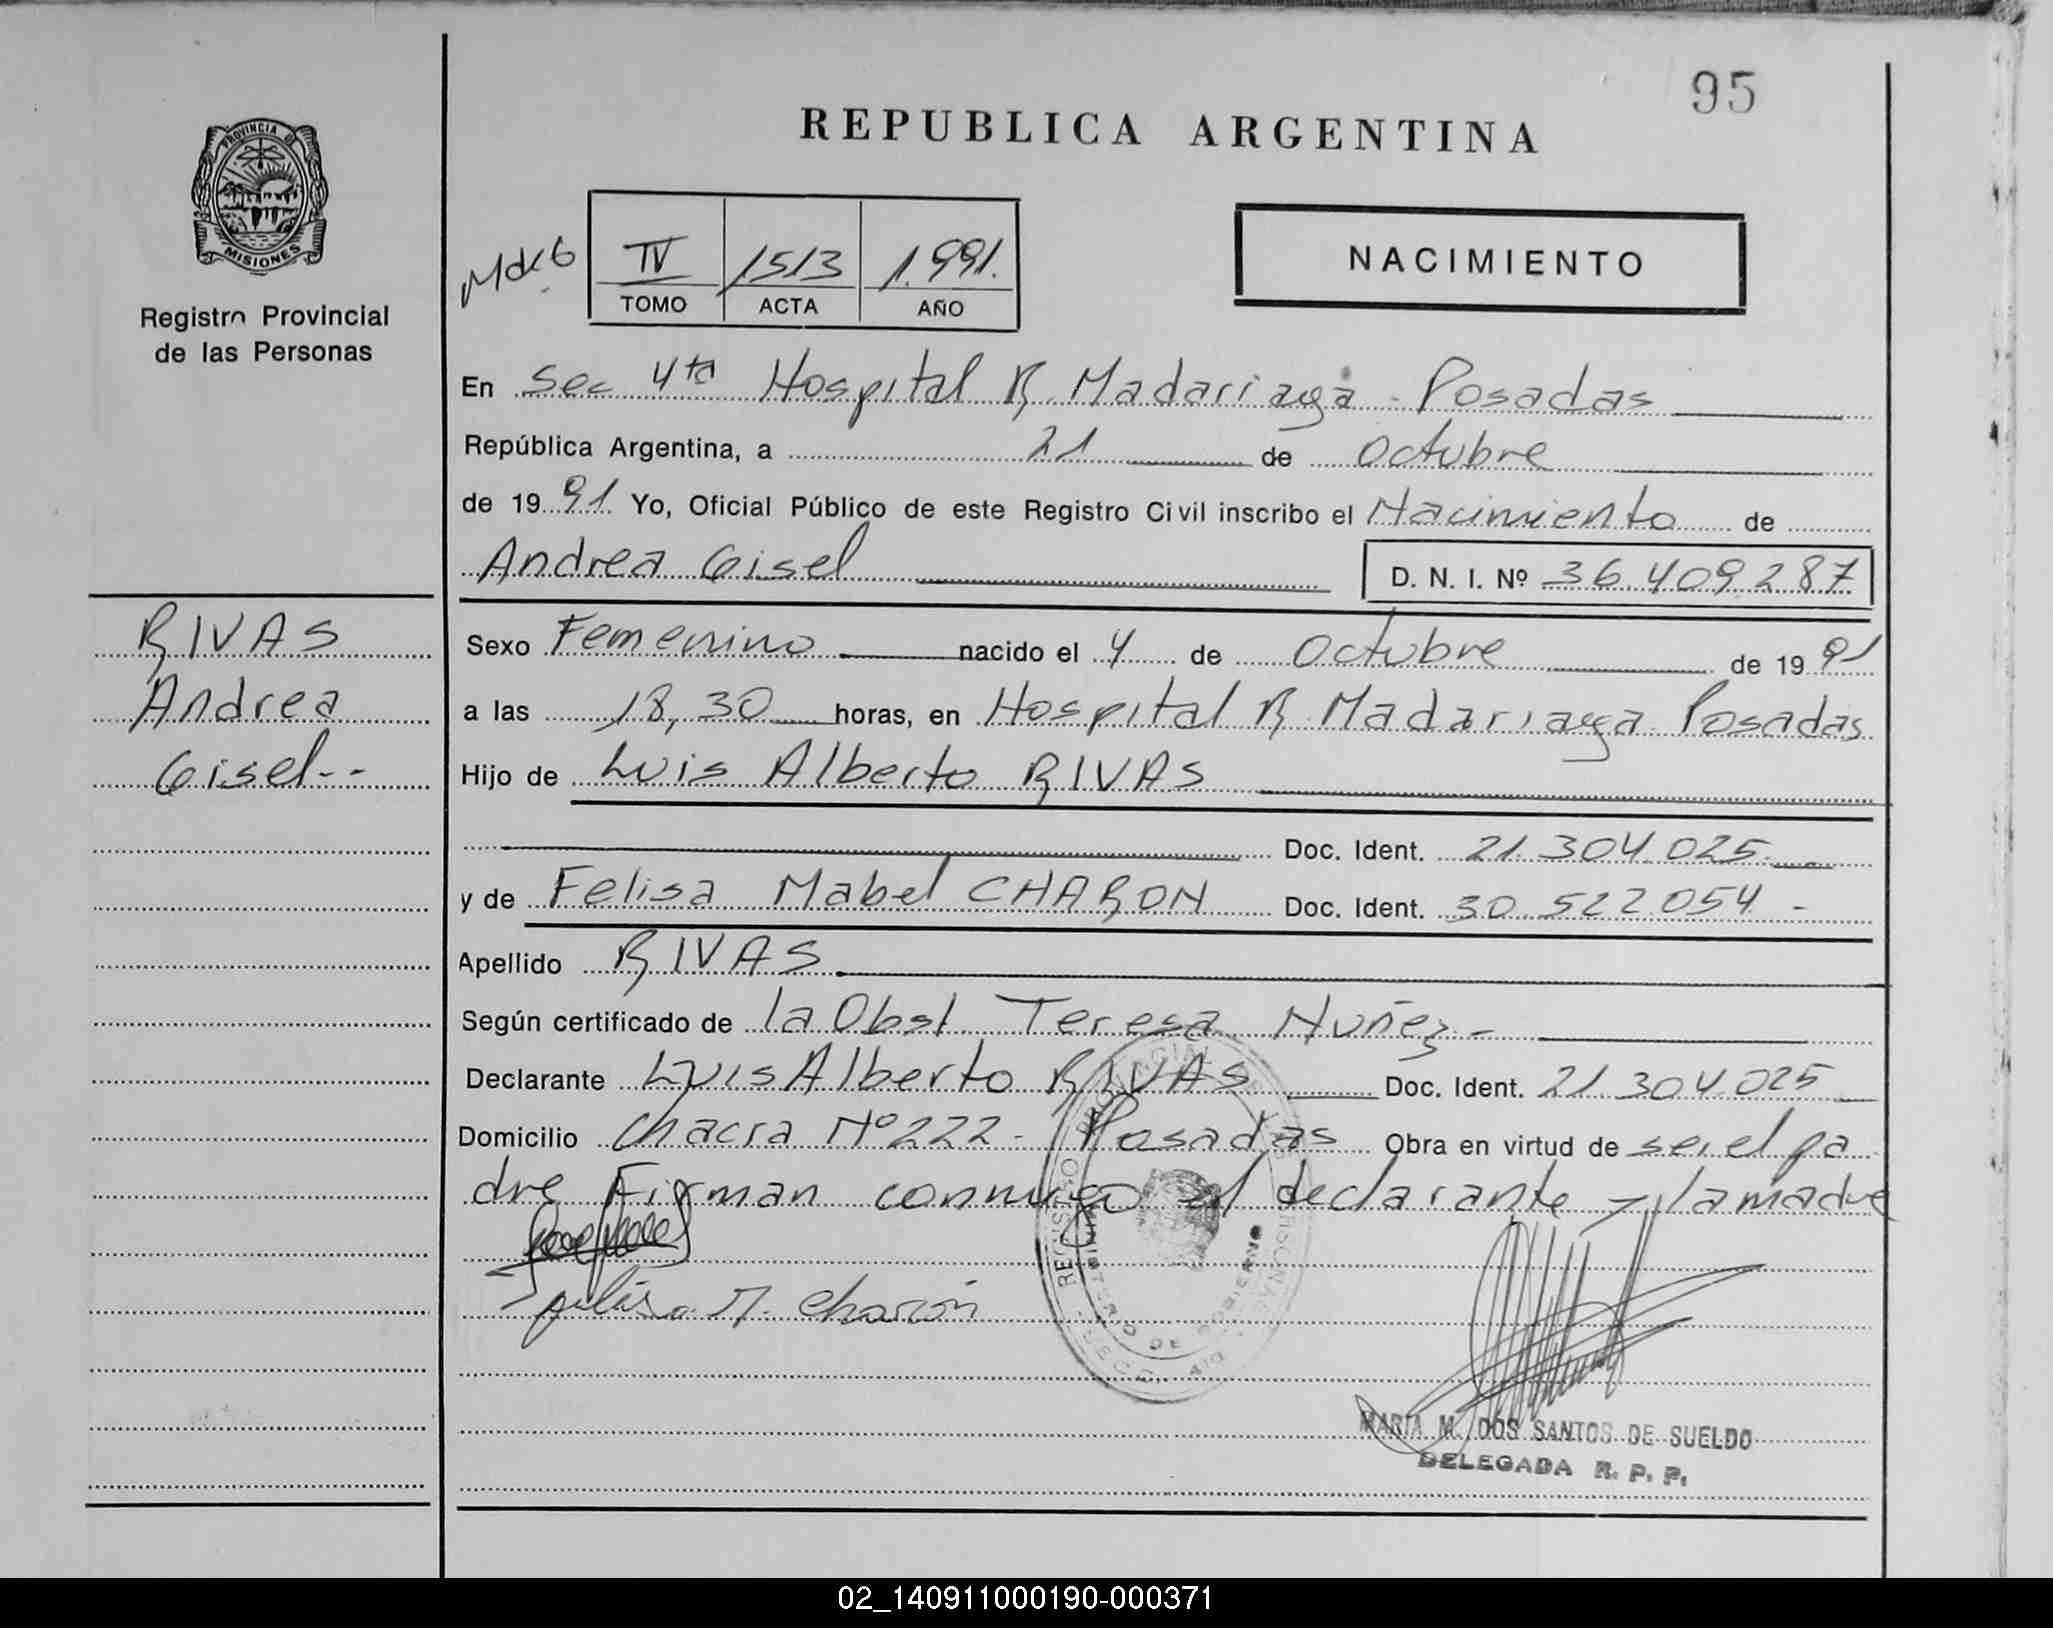 95
REPUBLICA ARGENTINA
PROVINCIA DE
MISIONES
Registro Provincial
de las Personas
IV 1513 1.991.
TOMO ACTA AÑO
NACIMIENTO
En Sec 4ta Hospital R. Madariaga - Posadas
República Argentina, a 21 de Octubre
de 1991. Yo, Oficial Público de este Registro Civil inscribo el Nacimiento de
Andrea Gisel D. N. I. Nº 36.409.287
RIVAS
Andrea
Gisel--
Sexo Femenino nacido el 4 de Octubre de 1991
a las 18,30 horas, en Hospital R. Madariaga Posadas
Hijo de Luis Alberto RIVAS
Doc. Ident. 21.304.025
y de Felisa Mabel CHARON Doc. Ident. 30.522.054 -
Apellido RIVAS
Según certificado de la Obst. Teresa Nuñez -
Declarante Luis Alberto RIVAS Doc. Ident. 21.304.025
Domicilio Chacra Nº 222 - Posadas Obra en virtud de ser el pa
dre Firman conmigo el declarante y la madre
Felisa M. Charón
MARIA M. DOS SANTOS DE SUELDO
DELEGADA R. P. P.
02_140911000190-000371